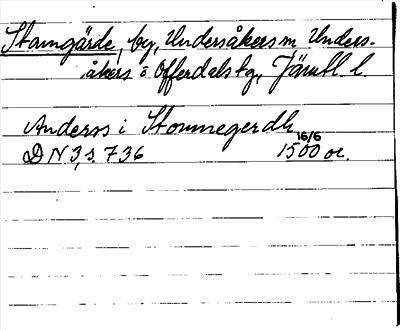 Stamgärde, by, Undersåkers sn, Unders-
åkers o Offerdals tg, Jämtl. l.
Anderss i Stomnegerdh
16/6
DN 3, s. 736 1500 or.